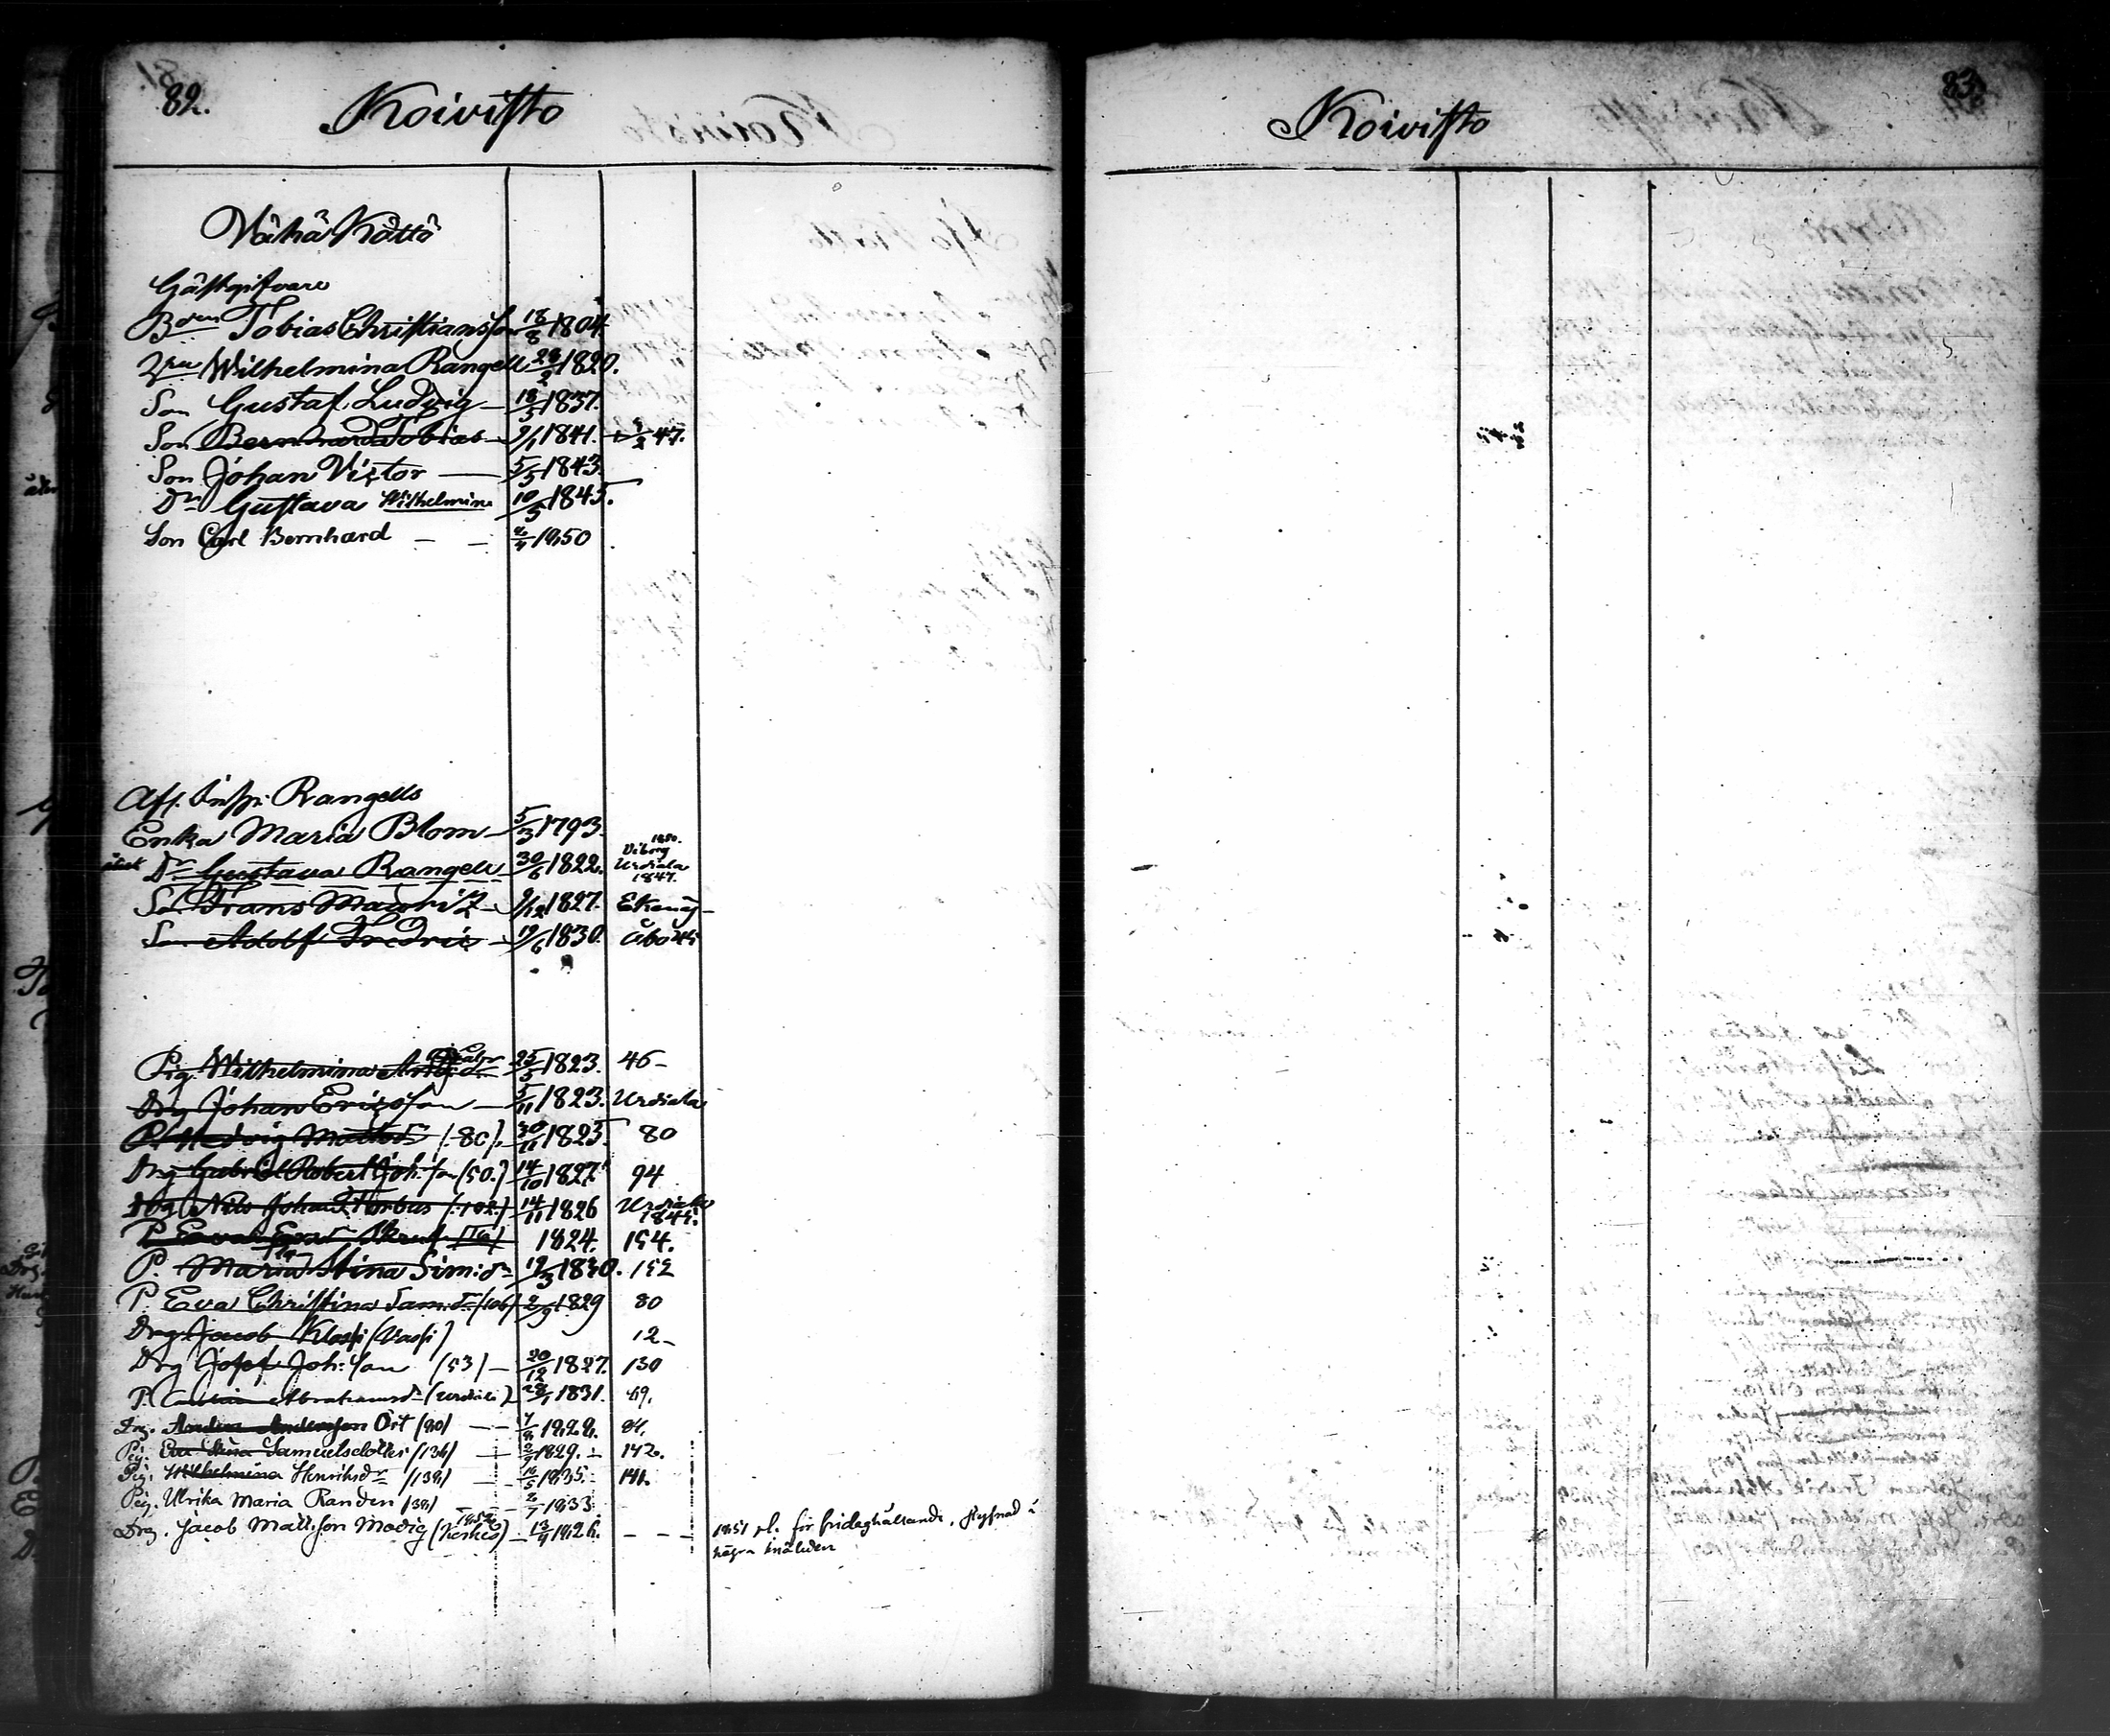 82.
Koivisto
Vähä Köttö
Gästgifvare
Bden Tobias Christiansson 18/8 1804.
Wilhelmina Rangell 23/2 1820.
Son Gustaf Ludvig 18/5 1837.
Son Bernhard Tobias 9/1 1841. 47.
Son Johan Victor 5/5 1843.
Dr Gustava Wilhelmina 10/5 1845.
Son Carl Bernhard 1850
Afl. Insp. Rangells
Enka Maria Blom 5/3 1793.
Dr Gustava Rangell 30/6 1822. Viborg 1850. Urdiala 1847.
Son Frans Mauritz 9/12 1827. Ekenäs
Son Adolf Fredric 19/6 1830. Åbo 45
Pig. Wilhelmina 25/5 1823. 46
Drg Johan Ericsson 5/11 1823. Urdiala
P. Hedvig Mattsdr (80). 30/11 1825 80
Drg Gabriel Robert Joh:son (50.) 14/10 1827. 94
Drg Nils Johan Forbus (102) 14/11 1826 Urdiala 1845.
P. Eva 1824. 154.
P. Maria Stina Sim:dr 19/3 1830. 152
P. Eva Christina Sam:dr (106) 2/9 1829 80
Drg. Jacob Klassi (Vassi) 12
Drg Josef Joh:son (53) 20/12 1827. 130
P. Abrahamsdr (Urdiala) 28/1 1831. 69.
Drg. Anders Andersson Ört (90) 1828. 84.
Pig. Eva Stina Samuelsdotter (136) 2/9 1829. 142.
Pig. Wilhelmina Henriksdr (139) 16/5 1835. 141.
Pig. Ulrika Maria Randen (39) 2/7 1833
Drg. Jacob Matts:son Modig (Kerkis) 1852 13/4 1826. 1851 pl. för fridaghållande, flyfnad i
några kuälden
83.
Koivisto